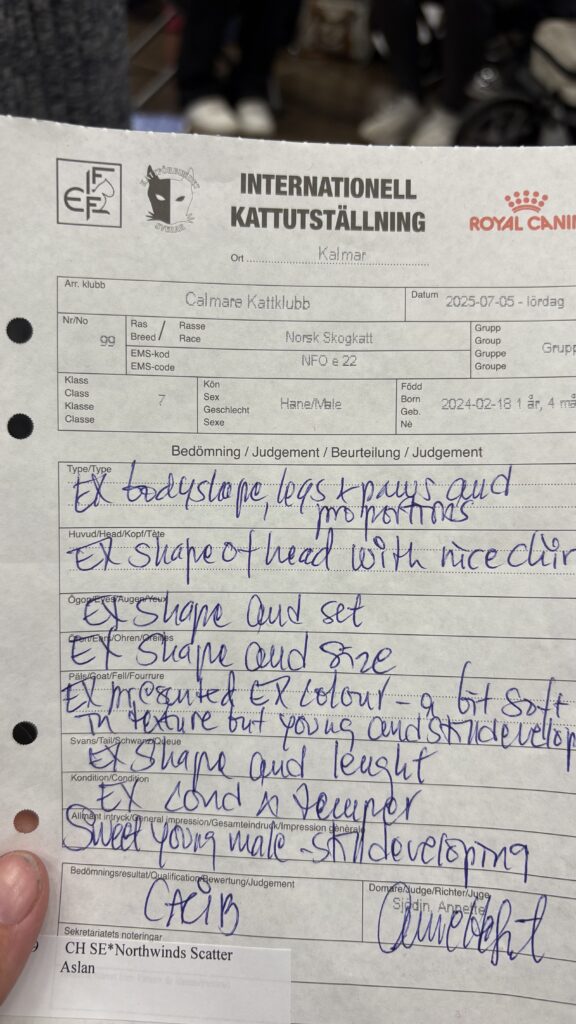 INTERNATIONELL
KATTUTSTÄLLNING
FIFe
SVERAK
ROYAL CANIN
Ort Kalmar
Arr. klubb
Calmare Kattklubb
Datum 2025-07-05 - lördag
Nr/No
99
Ras Rasse
Breed / Race
Norsk Skogkatt
EMS-kod
EMS-code
NFO e 22
Grupp
Group
Gruppe
Groupe
Grupp
Klass
Class
Klasse
Classe
7
Kön
Sex
Geschlecht
Sexe
Hane/Male
Född
Born
Geb.
Nè
2024-02-18 1 år, 4 må
Bedömning / Judgement / Beurteilung / Judgement
Type/Type
EX bodyshape, legs + paws and
proportions
Huvud/Head/Kopf/Tête
EX shape of head with nice chin
Ögon/Eyes/Augen/Yeux
EX shape and set
Öron/Ears/Ohren/Oreilles
EX shape and size
Päls/Coat/Fell/Fourrure
EX presented EX colour - a bit soft
in texture but young and still develop
Svans/Tail/Schwanz/Queue
EX shape and lenght
Kondition/Condition
EX cond + temper
Allmänt intryck/General impression/Gesamteindruck/Impression générale
Sweet young male - still developing
Bedömningsresultat/Qualification/Bewertung/Judgement
CACIB
Domare/Judge/Richter/Juge
Sjödin, Annette
Sekretariatets noteringar
9
CH SE*Northwinds Scatter
Aslan